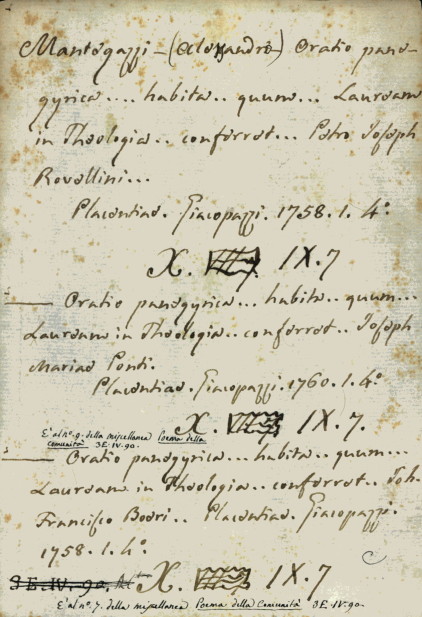 Mantegazzi - (Alessandro) Oratio pane-
gyrica .... habita.. quum... Lauream
in Theologia.. conferret... Petro Joseph
Rovellini...
Placentiae. Giacopazzi. 1758. 1. 4º.
X. IX. 7
Oratio panegyrica... habita.. quum...
Lauream in Theologia.. conferret.. Joseph
Mariae Ponti.
Placentiae. Giacopazzi. 1760. 1. 4º
X. IX. 7.
E' al nº. 9. della miscellanea Poema della
Comunità 3 E. IV. 90.
Oratio panegyrica... habita.. quum...
Lauream in Theologia.. conferret.. Joh.
Francisco Boeri.. Placentiae. Giacopazzi.
1758. 1. 4º.
3 E. IV. 90. X. IX. 7
E' al nº. 7. della miscellanea Poema della Comunità 3 E. IV. 90.